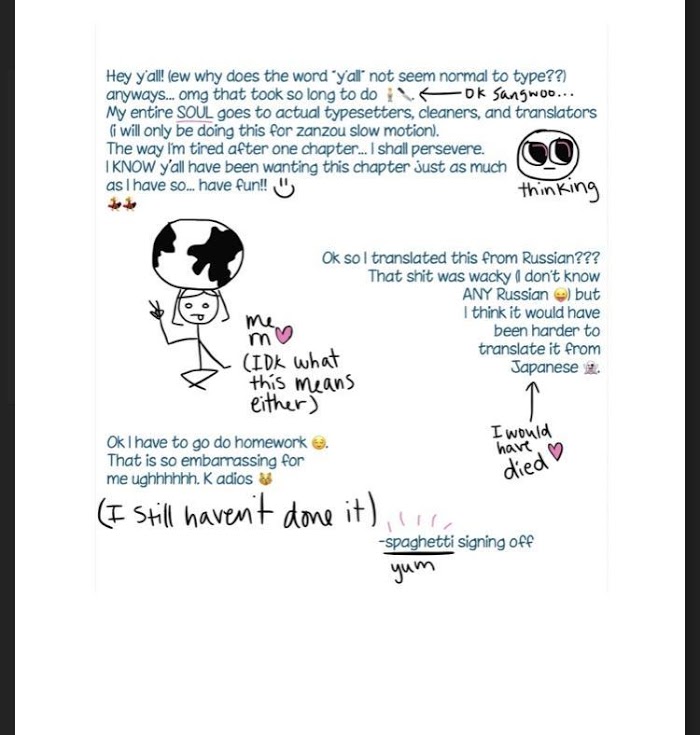 Hey y'all! (ew why does the word "y'all" not seem normal to type??)
anyways... omg that took so long to do 🧍🔪 ← OK Sangwoo...
My entire SOUL goes to actual typesetters, cleaners, and translators
(i will only be doing this for zanzou slow motion).
The way I'm tired after one chapter... I shall persevere.
I KNOW y'all have been wanting this chapter just as much
as I have so... have fun!!
thinking
Ok so I translated this from Russian???
That shit was wacky (I don't know
ANY Russian 😛) but
I think it would have
been harder to
translate it from
Japanese
me
m
(IDK what
this means
either)
I would
have
died
Ok I have to go do homework 😏.
That is so embarrassing for
me ughhhhhh. K adios
(I still haven't done it)
-spaghetti signing off
yum